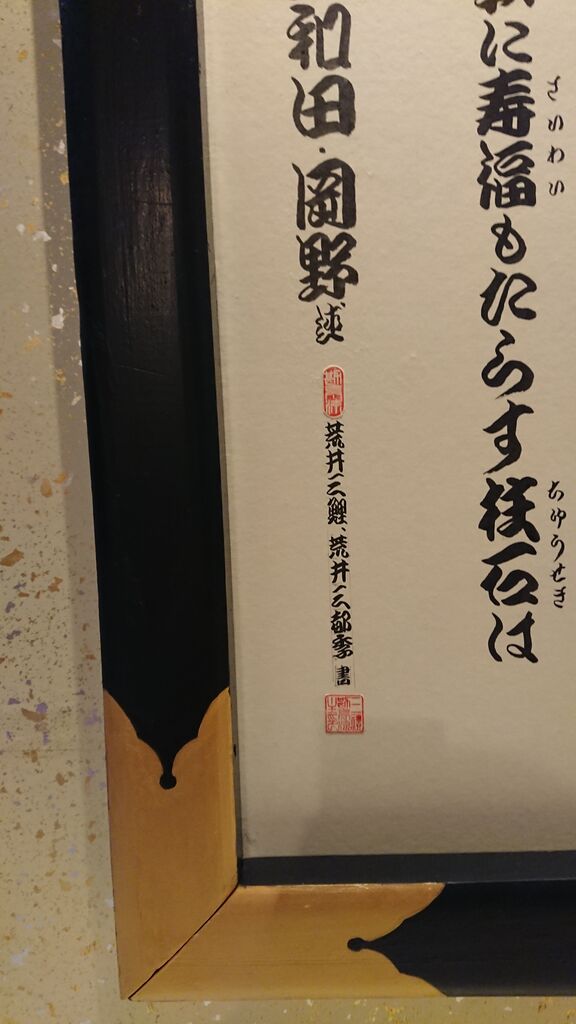 さいわい
ちゆうせき
に寿福もたらす石は
和田・岡野
荒井三鯉、荒井三都季 書